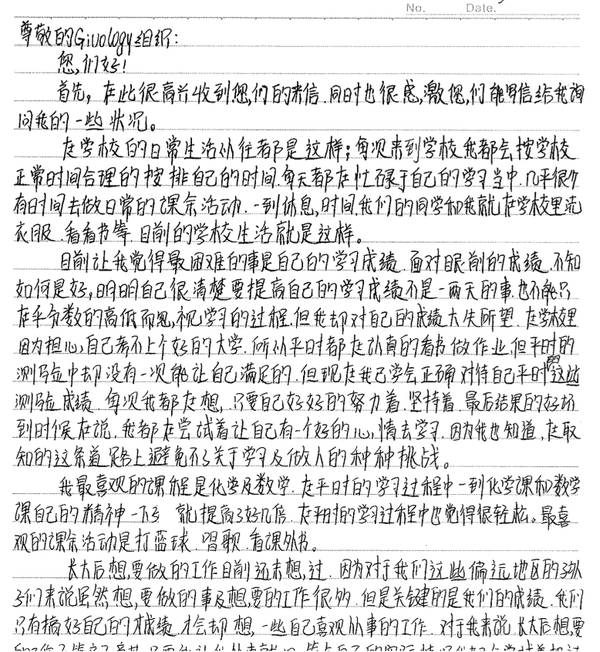 No. Date.
尊敬的Givology组织:
您们好!
首先,在此很高兴收到您们的来信.同时也很感激您们能写信给我询
问我的一些状况。
在学校的日常生活以往都是这样;每次来到学校我都会按学校
正常时间合理的按排自己的时间.每天都在忙碌于自己的学习当中.几乎很少
有时间去做日常的课余活动.一到休息时间我们的同学和我就在学校里洗
衣服.看看书等.目前的学校生活就是这样。
目前让我觉得最困难的事是自己的学习成绩.面对眼前的成绩.不知
如何是好,明明自己很清楚要提高自己的学习成绩不是一两天的事.也不能只
在乎分数的高低而忽视学习的过程.但我却对自己的成绩大失所望.在学校里
因为担心自己考不上个好的大学.所以平时都在认真的看书做作业.但平时的
测验中却没有一次能让自己满足的.但现在我已学会正确对待自己平时的这些
测验成绩.每次我都在想,只要自己好好的努力着.坚持着.最后结果的好坏
到时候在说.我都在尝试着让自己有一个好的心情去学习.因为我也知道,在取
知的这条道路上避免不了关于学习及做人的种种挑战。
我最喜欢的课程是化学及数学.在平时的学习过程中一到化学课和数学
课自己的精神一下子 就提高了好几倍.在翔的学习过程中也觉得很轻松。最喜
欢的课余活动是打蓝球.唱歌.看课外书。
长大后想要做的工作目前还未想过.因为对于我们这些偏远地区的孩
子们来说虽然想要做的事及想要的工作很多.但是关键的是我们的成绩.我们
只有搞好自己的成绩.才会却想一些自己喜欢从事的工作.对于我来说.长大后想要